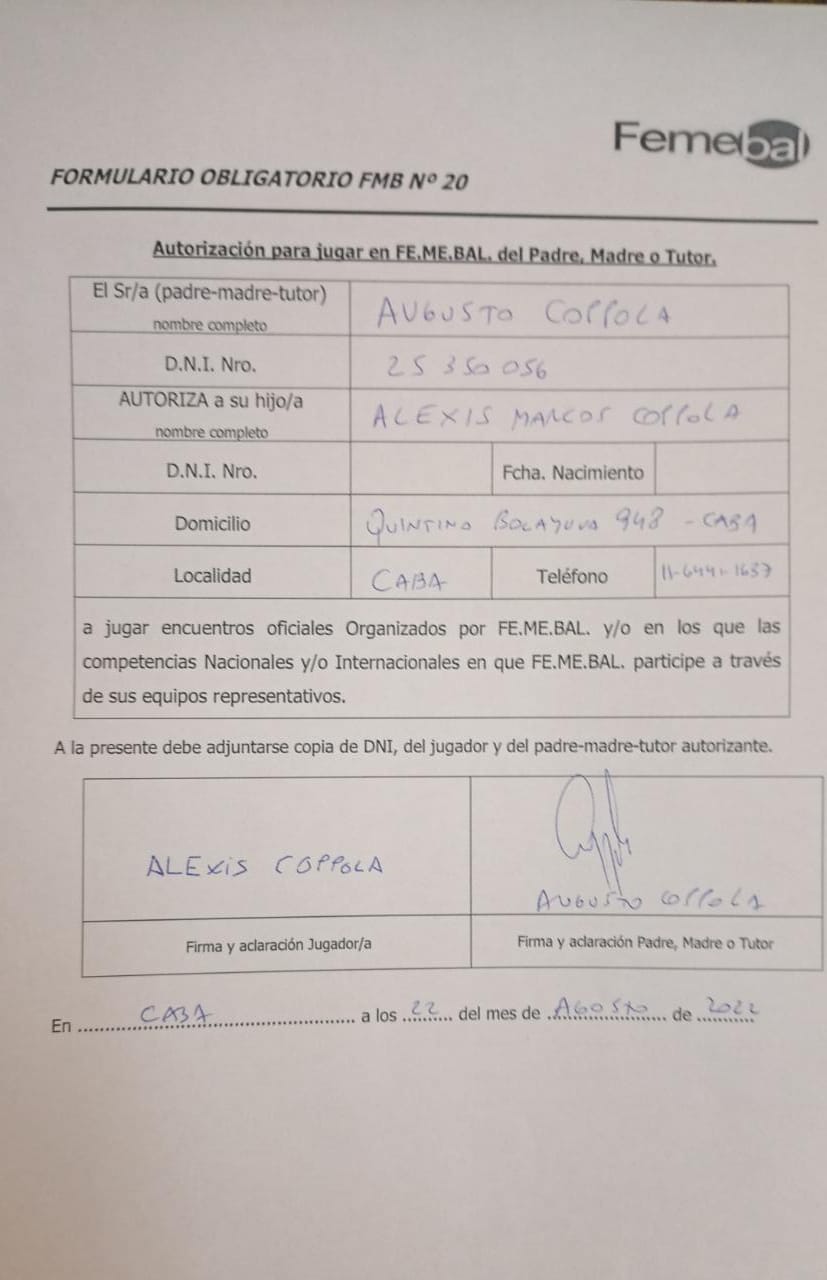 Femebal
FORMULARIO OBLIGATORIO FMB Nº 20
Autorización para jugar en FE.ME.BAL. del Padre, Madre o Tutor.
El Sr/a (padre-madre-tutor)
nombre completo
AUGUSTO COPPOLA
D.N.I. Nro.
25 350 056
AUTORIZA a su hijo/a
nombre completo
ALEXIS MARCOS COPPOLA
D.N.I. Nro.
Fcha. Nacimiento
Domicilio
QUINTINO BOCAYUVA 948 - CABA
Localidad
CABA
Teléfono
11-6441-1637
a jugar encuentros oficiales Organizados por FE.ME.BAL. y/o en los que las
competencias Nacionales y/o Internacionales en que FE.ME.BAL. participe a través
de sus equipos representativos.
A la presente debe adjuntarse copia de DNI, del jugador y del padre-madre-tutor autorizante.
ALEXIS COPPOLA
AUGUSTO COPPOLA
Firma y aclaración Jugador/a
Firma y aclaración Padre, Madre o Tutor
En CABA a los 22 del mes de AGOSTO de 2022